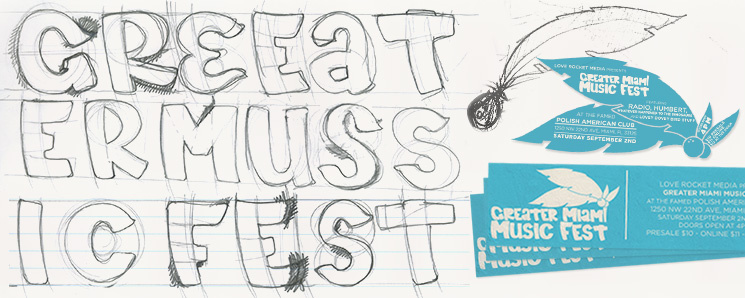 GREEaT
ERMUSS
IC FEST
LOVE ROCKET MEDIA PRESENTS
GREATER MIAMI
MUSIC FEST
FEATURING
RADIO, HUMBERT,
AT THE FAMED
POLISH AMERICAN CLUB
1250 NW 22ND AVE, MIAMI, FL 33125
SATURDAY SEPTEMBER 2ND
4PM
GREATER MIAMI
MUSIC FEST
LOVE ROCKET MEDIA
GREATER MIAMI MUSIC
AT THE FAMED POLISH AMERI
1250 NW 22ND AVE, MIAM
SATURDAY SEPTEMBER 2N
DOORS OPEN AT 4P
PRESALE $10 · ONLINE $11 ·
MUSIC FEST